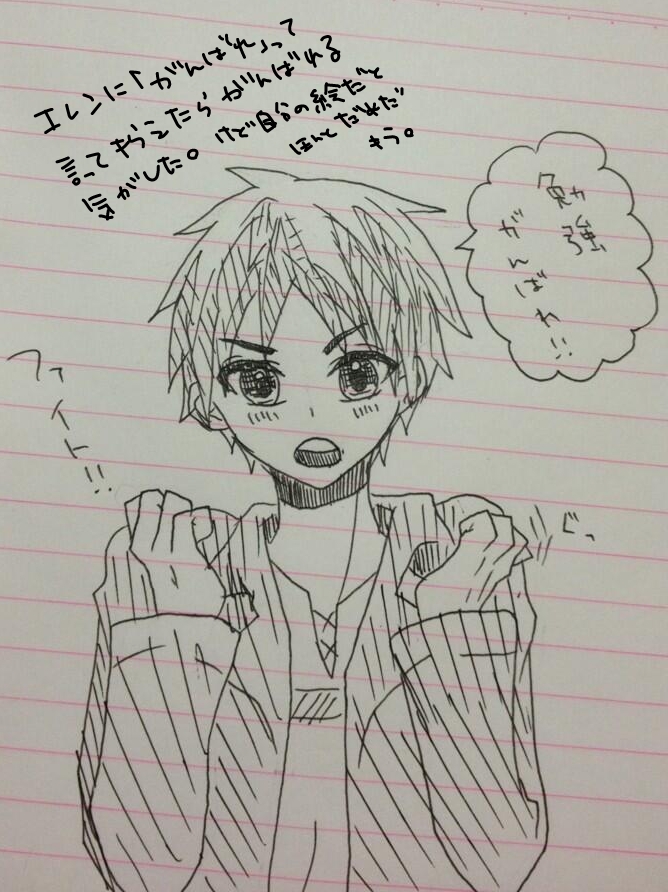 エレンに「がんばれ」って
言ってもらえたらがんばれる
気がした。けど自分の絵だと
ほんとだれだ
もう。
勉強
がんばれ!!
ファイト!!
ぐっ